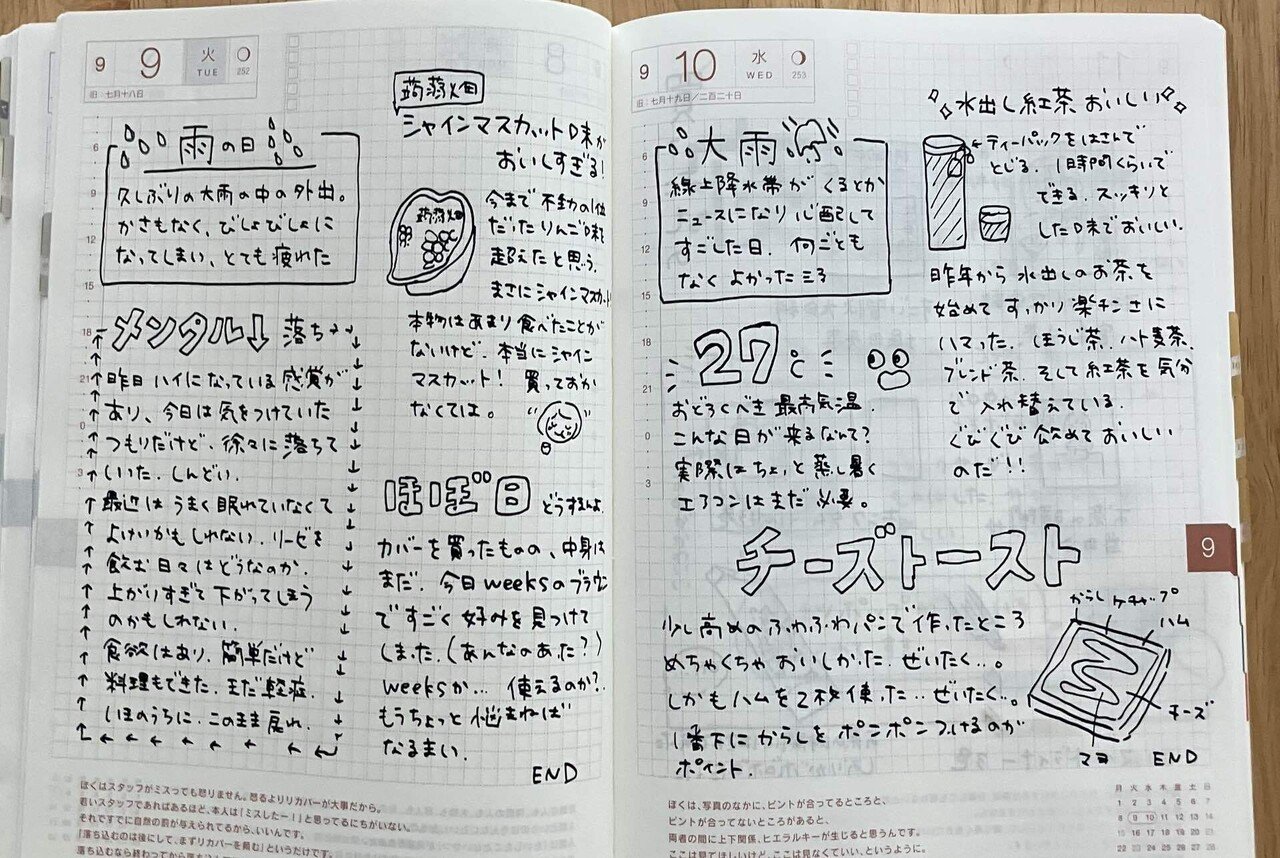 9 9 火 TUE 252
旧: 七月十八日
雨の日
久しぶりの大雨の中の外出。
かさもなく、びしょびしょに
なってしまい、とても疲れた
メンタル↓ 落ちょ
昨日ハイになっている感覚が
あり、今日は気をつけていた
つもりだけど、徐々に落ちて
いいた. しんどい.
最近はうまく眠れていなくて
よけいかもしれない. リービを
飲む日々はどうなのか.
上がりすぎて下がってしまう
のかもしれない.
食欲はあり. 簡単だけど
料理もできた. まだ軽症.
いまのうちに. このまま戻れ.
蒟蒻畑
シャインマスカット味が
おいしすぎる!
蒟蒻畑
今まで不動の1位
だったりんご味を
超えたと思う.
まさにシャインマスカット!
本物はあまり食べたことが
ないけど. 本当にシャイン
マスカット! 買っておか
なくては。
ほぼ日 どうすんよ.
カバーを買ったものの、中身は
まだ. 今日weeksのブラウン
ですごく好みを見つけて
しまった. (あんなのあった?)
weeksか... 使えるのか?.
もうちょっと悩まねば
なるまい.
END
ぼくはスタッフがミスっても怒りません。怒るよりリカバーが大事だから。
君いスタッフであればあるほど、本人は「ミスしたー！」と思ってるにちがいない。
それですでに自然の罰が与えられてるから、いいんです。
「落ち込むのは後にして、まずリカバーを頼む」というだけです。
落ち込むなら終わってから
9 10 水 WED 253
旧: 七月十九日／二百二十日
大雨
線上降水帯がくるとか
ニュースになり心配して
すごした日. 何ごとも
なくよかった
27℃
おどろくべき最高気温.
こんな日が来るなんて?
実際はちょっと蒸し暑く
エアコンはまだ必要。
水出し紅茶おいしい
ティーパックをはさんで
とじる. 1時間くらいで
できる. スッキリと
した味でおいしい.
昨年から水出しのお茶を
始めてすっかり楽チンさに
ハマった. ほうじ茶. ハト麦茶.
ブレンド茶. そして紅茶を気分
で入れ替えている.
ぐびぐび飲めておいしい
のだ!!
チーズトースト
少し高めのふわふわパンで作ったところ
めちゃくちゃおいしかった. ぜいたく..。
しかもハムを2枚使った.. ぜいたく..。
1番下にからしをポンポンつけるのが
ポイント.
からし
ケチャップ
ハム
チーズ
マヨ
END
9
ぼくは、写真のなかに、ピントが合ってるところと、
ピントが合ってないところがあると、
両者の間に上下関係、ヒエラルキーが生じると思うんです。
ここは見てほしいけど、ここは見なくていい、というように。
月 火 水 木 金 土 日
1 2 3 4 5 6 7
8 9 10 11 12 13 14
15 16 17 18 19 20 21
22 23 24 25 26 27 28